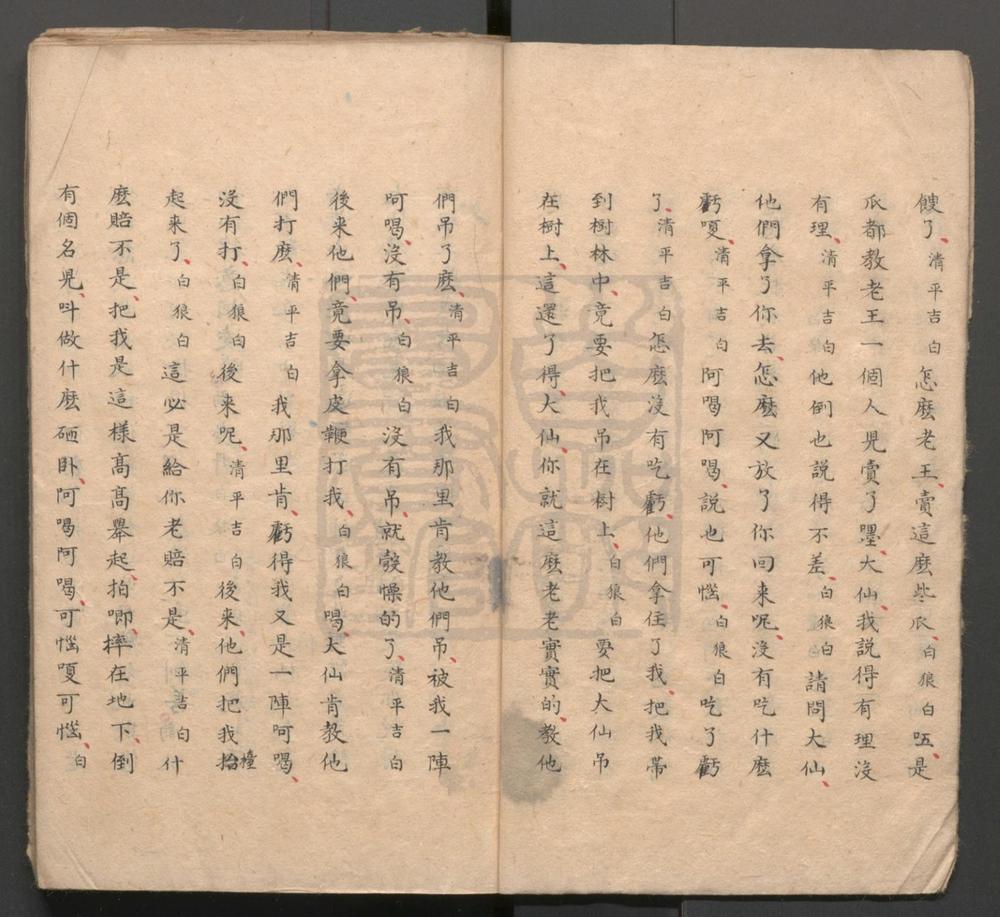 餿了、清平吉白怎麽老王、賣這麽些瓜、白狼白㕶、是
瓜都教老王一個人児賣了嚜、大仙、我說得有理沒
有理、清平吉白他倒也説得不差、白狼白請問大仙、
他們拿了你去、怎麽又放了你回来呢、沒有吃什麽
虧嗄、清平吉白阿喝阿喝、説也可惱、白狼白吃了虧
了、清平吉白怎麽沒有吃虧、他們拿住了我、把我帶
到樹林中、竟要把我吊在樹上、白狼白要把大仙吊
在樹上、這還了得、大仙、你就這麽老老實實的、教他
們吊了麽、清平吉白我那里肯教他們吊、被我一陣
呵喝、沒有吊、白狼白沒有吊、就彀懆的了、清平吉白
後来他們、竟要拿皮鞭打我、白狼白喝、大仙肯教他
們打麽、清平吉白我那里肯、虧得我又是一陣呵喝、
沒有打、白狼白後来呢、清平吉白後来、他們把我抬擡
起来了、白狼白這必是給你老賠不是、清平吉白什
麽賠不是、把我是這樣高高舉起、拍唧、摔在地下、倒
有個名児、呌做什麽砸卧、阿喝阿喝、可惱嗄可惱、白